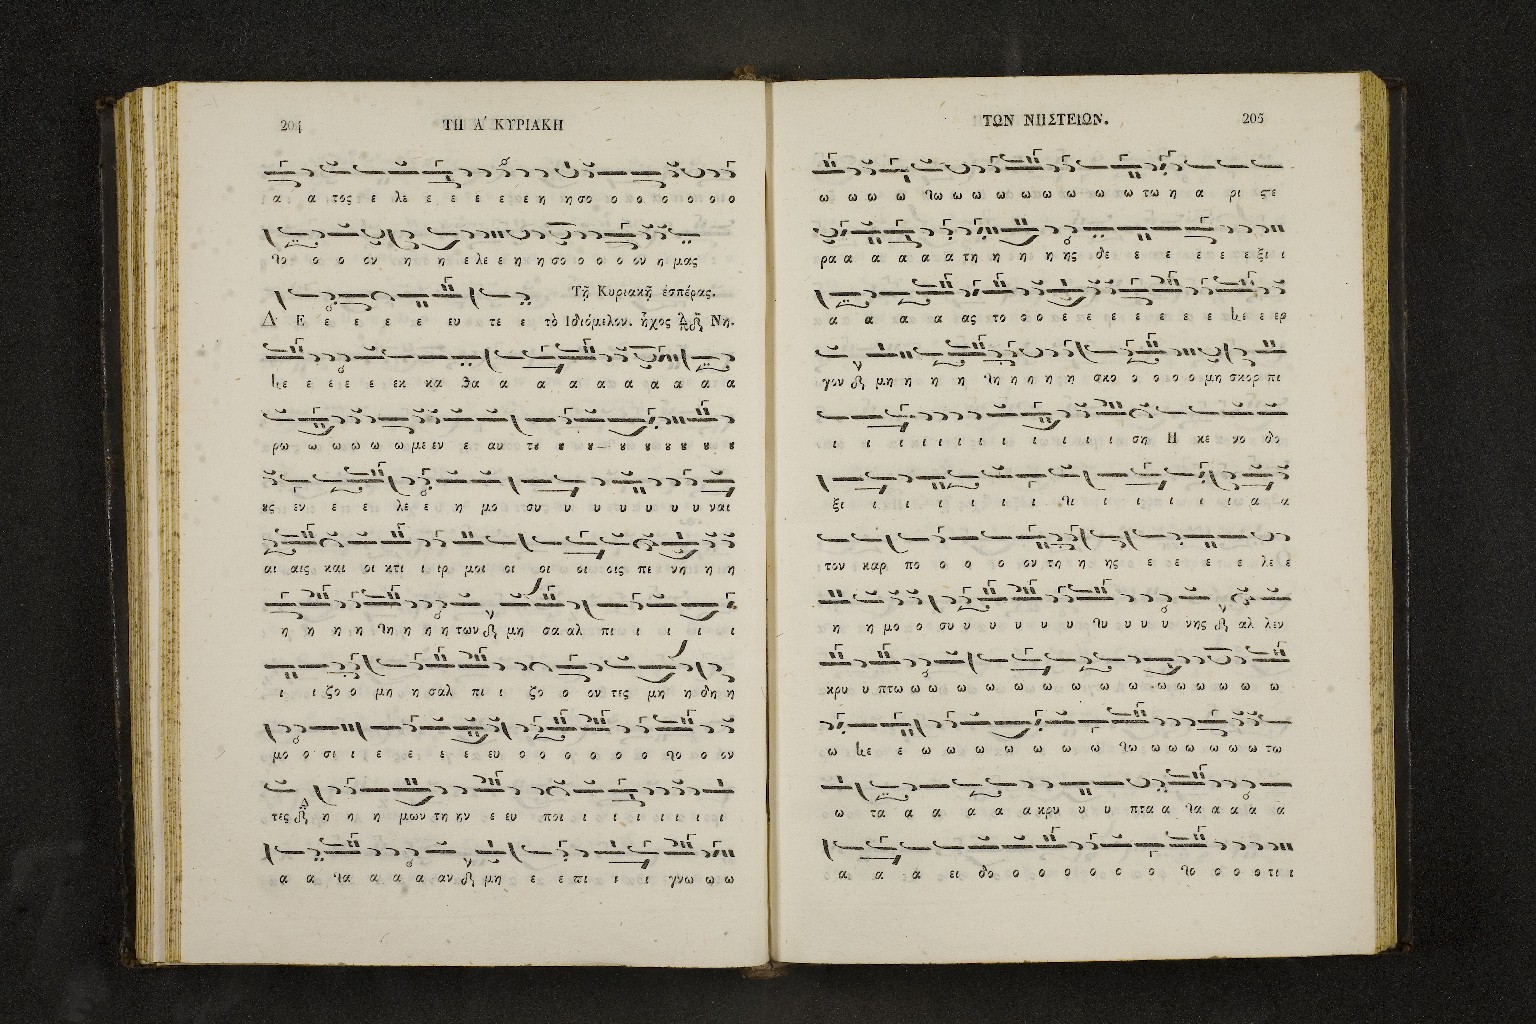 204 ΤΗ Α΄ ΚΥΡΙΑΚΗ
α α τος ε λε ε ε ε ε ε η η σο ο ο ο ο ο ο
το ο ο ον η η ε λε ε η η σο ο ο ο ον η μας
Τῇ Κυριακῇ ἑσπέρας.
Δ Ε ε ε ε ε ευ τε ε τὸ Ἰδιόμελον. ἦχος Νη.
κε ε ε ε ε εκ κα θα α α α α α α α α α
ρω ω ω ω ω ω με εν ε αυ τȣ ȣ ȣ ȣ ȣ ȣ ȣ ȣ
ȣς εν ε ε λε ε η μο συ υ υ υ υ υ υ ναι
αι αις και οι κτι ι ιρ μοι οι οι οι οις πε νη η η
η η η η νη η η η των μη σα αλ πι ι ι ι ι
ι ι ζο ο μη η σαλ πι ι ζο ο ον τες μη η δη η
μο ο σι ι ε ε ε ε ευ ο ο ο ο ο ο νο ο ον
τες η η η μων τη ην ε ευ ποι ι ι ι ι ι ι ι
α α να α α α αν μη ε ε πι ι ι γνω ω ω
ΤΩΝ ΝΗΣΤΕΙΩΝ. 205
ω ω ω ω νω ω ω ω ω ω ω ω ω τω η α ρι ϛε
ρα α α α α α τη η η η ης δε ε ε ε ε ε ξι ι
α α α α ας το ο ο ε ε ε ε ε ε ε κε ε ερ
γον μη η η η νη η η η η σκο ο ο ο ο μη σκορ πι
ι ι ι ι ι ι ι ι ι ι ι ι ση Η κε νο δο
ξι ι ι ι ι ι ι ι νι ι ι ι ι ι ι α α
τον καρ πο ο ο ο ον τη η ης ε ε ε ε λε ε
η η μο ο συ υ υ υ υ υ νυ υ υ υ νης αλ λεν
κρυ υ πτω ω ω ω ω ω ω ω ω ω ω ω ω ω ω
ω κε ε ω ω ω ω ω ω ω νω ω ω ω ω ω ω τω
ω τα α α α α α κρυ υ υ υ πτα α να α α α α
α α α ει δο ο ο ο ο ο ο ο νο ο ο ο τι ι